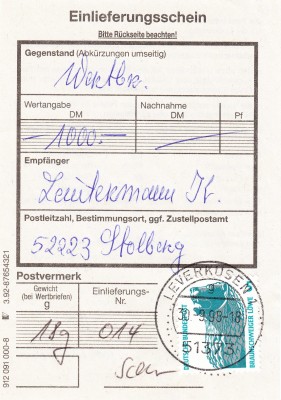 Einlieferungsschein
Bitte Rückseite beachten!
Gegenstand (Abkürzungen umseitig)
Wertbr.
Wertangabe
DM
Nachnahme
DM
Pf
- 1000.-
Empfänger
Leutermann K.
Postleitzahl, Bestimmungsort, ggf. Zustellpostamt
52223 Stolberg
Postvermerk
Gewicht
(bei Wertbriefen)
g
Einlieferungs-
Nr.
18g
014
LEVERKUSEN 1
9.93-18
51373
DEUTSCHE BUNDESPOST
BRAUNSCHWEIGER LÖWE
912 091 000-8
3.92-87654321